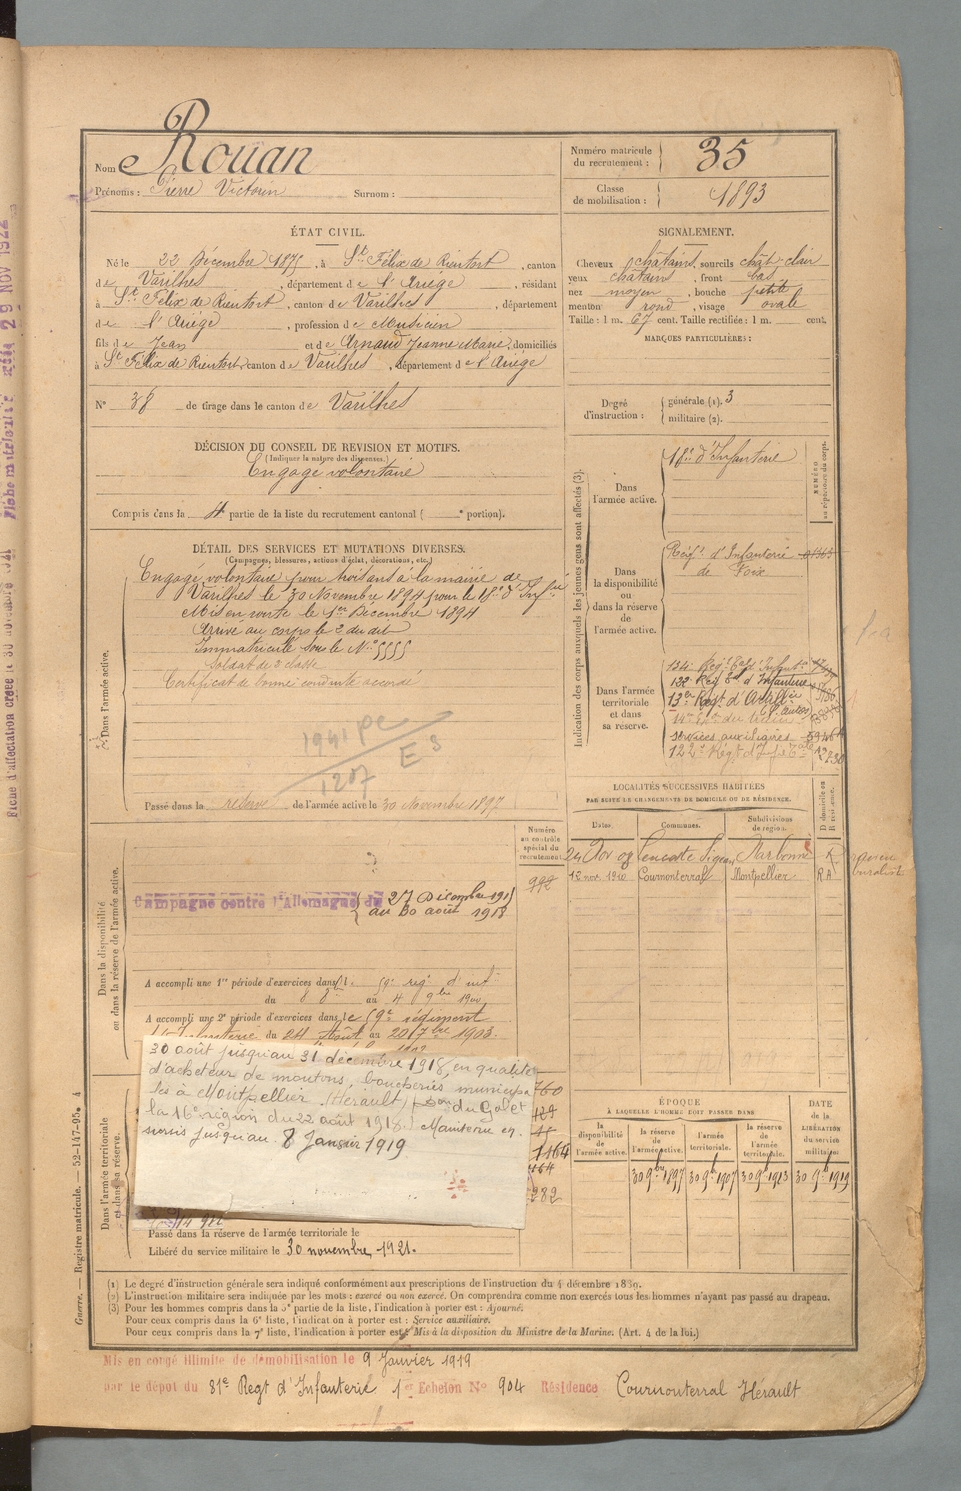 Nom Rouan
Prénoms : Pierre Victorin Surnom :
Numéro matricule du recrutement : 35
Classe de mobilisation : 1893
ÉTAT CIVIL.
Né le 22 Décembre 1875, à St Félix de Rieutort, canton
de Varilhes, département de l'Ariège, résidant
à St Félix de Rieutort, canton de Varilhes, département
de l'Ariège, profession de Musicien
fils de Jean et de Arnaud Jeanne Marie, domiciliés
à St Félix de Rieutort, canton de Varilhes, département de l'Ariège
N° 38 de tirage dans le canton de Varilhes
SIGNALEMENT.
Cheveux châtains, sourcils chât-clair
yeux châtains, front bas
nez moyen, bouche petite
menton rond, visage ovale
Taille : 1 m. 67 cent. Taille rectifiée : 1 m. cent.
MARQUES PARTICULIÈRES :
Degré d'instruction : générale (1). 3
militaire (2).
DÉCISION DU CONSEIL DE REVISION ET MOTIFS.
(Indiquer la nature des dispenses.)
Engagé volontaire
Compris dans la 4e partie de la liste du recrutement cantonal ( e portion).
DÉTAIL DES SERVICES ET MUTATIONS DIVERSES.
(Campagnes, blessures, actions d'éclat, décorations, etc.)
Dans l'armée active.
Engagé volontaire pour trois ans à la mairie de
Varilhes le 30 Novembre 1894 pour le 18e d'Infrie
Mis en route le 1er Décembre 1894
Arrivé au corps le 2 du dit
Immatriculé sous le N° 5555
Soldat de 2e classe
Certificat de bonne conduite accordé
1941 pc
1207 E 3
Passé dans la réserve de l'armée active le 30 Novembre 1897
Indication des corps auxquels les jeunes gens sont affectés (3).
NUMÉRO au répertoire du corps.
Dans l'armée active. 18e d'Infanterie
Dans la disponibilité ou dans la réserve de l'armée active. Régt d'Infanterie
de Foix
Dans l'armée territoriale et dans sa réserve. 134 Régt Tal d'Infant.
132 Rég Tal d'Infanterie
13e Régt d'Artillie
services auxiliaires
122e Régt d'Inf
LOCALITÉS SUCCESSIVES HABITÉES
PAR SUITE DE CHANGEMENTS DE DOMICILE OU DE RÉSIDENCE.
Dates. Communes. Subdivisions de région. D domicile ou R résidence.
24 Nov 08 Leucate Sigean Narbonne R
12 nov. 1910 Cournonterral Montpellier R A
Dans la disponibilité ou dans la réserve de l'armée active.
Numéro au contrôle spécial du recrutement
Campagne contre l'Allemagne du 27 Décembre 1915
au 30 août 1918
A accompli une 1re période d'exercices dans le 59e rég. d'inf.
du 8 8bre au 4 9bre 1900
A accompli une 2e période d'exercices dans le 59e régiment
d'Infanterie du 24 Août au 20 7bre 1903.
30 août jusqu'au 31 décembre 1918, en qualité
d'acheteur de moutons, boucheries municipa
les à Montpellier (Hérault) du Gal et
la 16e région du 22 août 1918. Maintenu en
sursis jusqu'au 8 Janvier 1919
760
1164
282
ÉPOQUE
À LAQUELLE L'HOMME DOIT PASSER DANS
la disponibilité de l'armée active. la réserve de l'armée active. l'armée territoriale. la réserve de l'armée territoriale.
DATE de la LIBÉRATION du service militaire
30 9bre 1897 30 9bre 1907 30 9bre 1913 30 9bre 1919
Dans l'armée territoriale et dans sa réserve.
Passé dans la réserve de l'armée territoriale le
Libéré du service militaire le 30 novembre 1921.
(1) Le degré d'instruction générale sera indiqué conformément aux prescriptions de l'instruction du 4 décembre 1889.
(2) L'instruction militaire sera indiquée par les mots : exercé ou non exercé. On comprendra comme non exercés tous les hommes n'ayant pas passé au drapeau.
(3) Pour les hommes compris dans la 5e partie de la liste, l'indication à porter est : Ajourné.
Pour ceux compris dans la 6e liste, l'indication à porter est : Service auxiliaire.
Pour ceux compris dans la 7e liste, l'indication à porter est : Mis à la disposition du Ministre de la Marine. (Art. 4 de la loi.)
Mis en congé illimité de démobilisation le 9 Janvier 1919
par le dépôt du 81e Regt d'Infanterie 1er Echelon N° 904 Résidence Cournonterral Hérault
Guerre. — Registre matricule. — 52-147-95. 4
29 NOV 1922